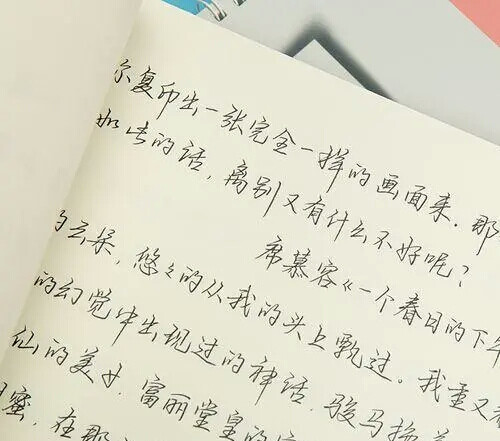 尔复印出一张完全一样的画面来.那
如此的话,离别又有什么不好呢?
席慕容《一个春日的下午
的云朵,悠々的从我的头上飘过。我重又
的幻觉中出现过的神话,骏马扬
仙的美女,富丽堂皇的
蜜,在那